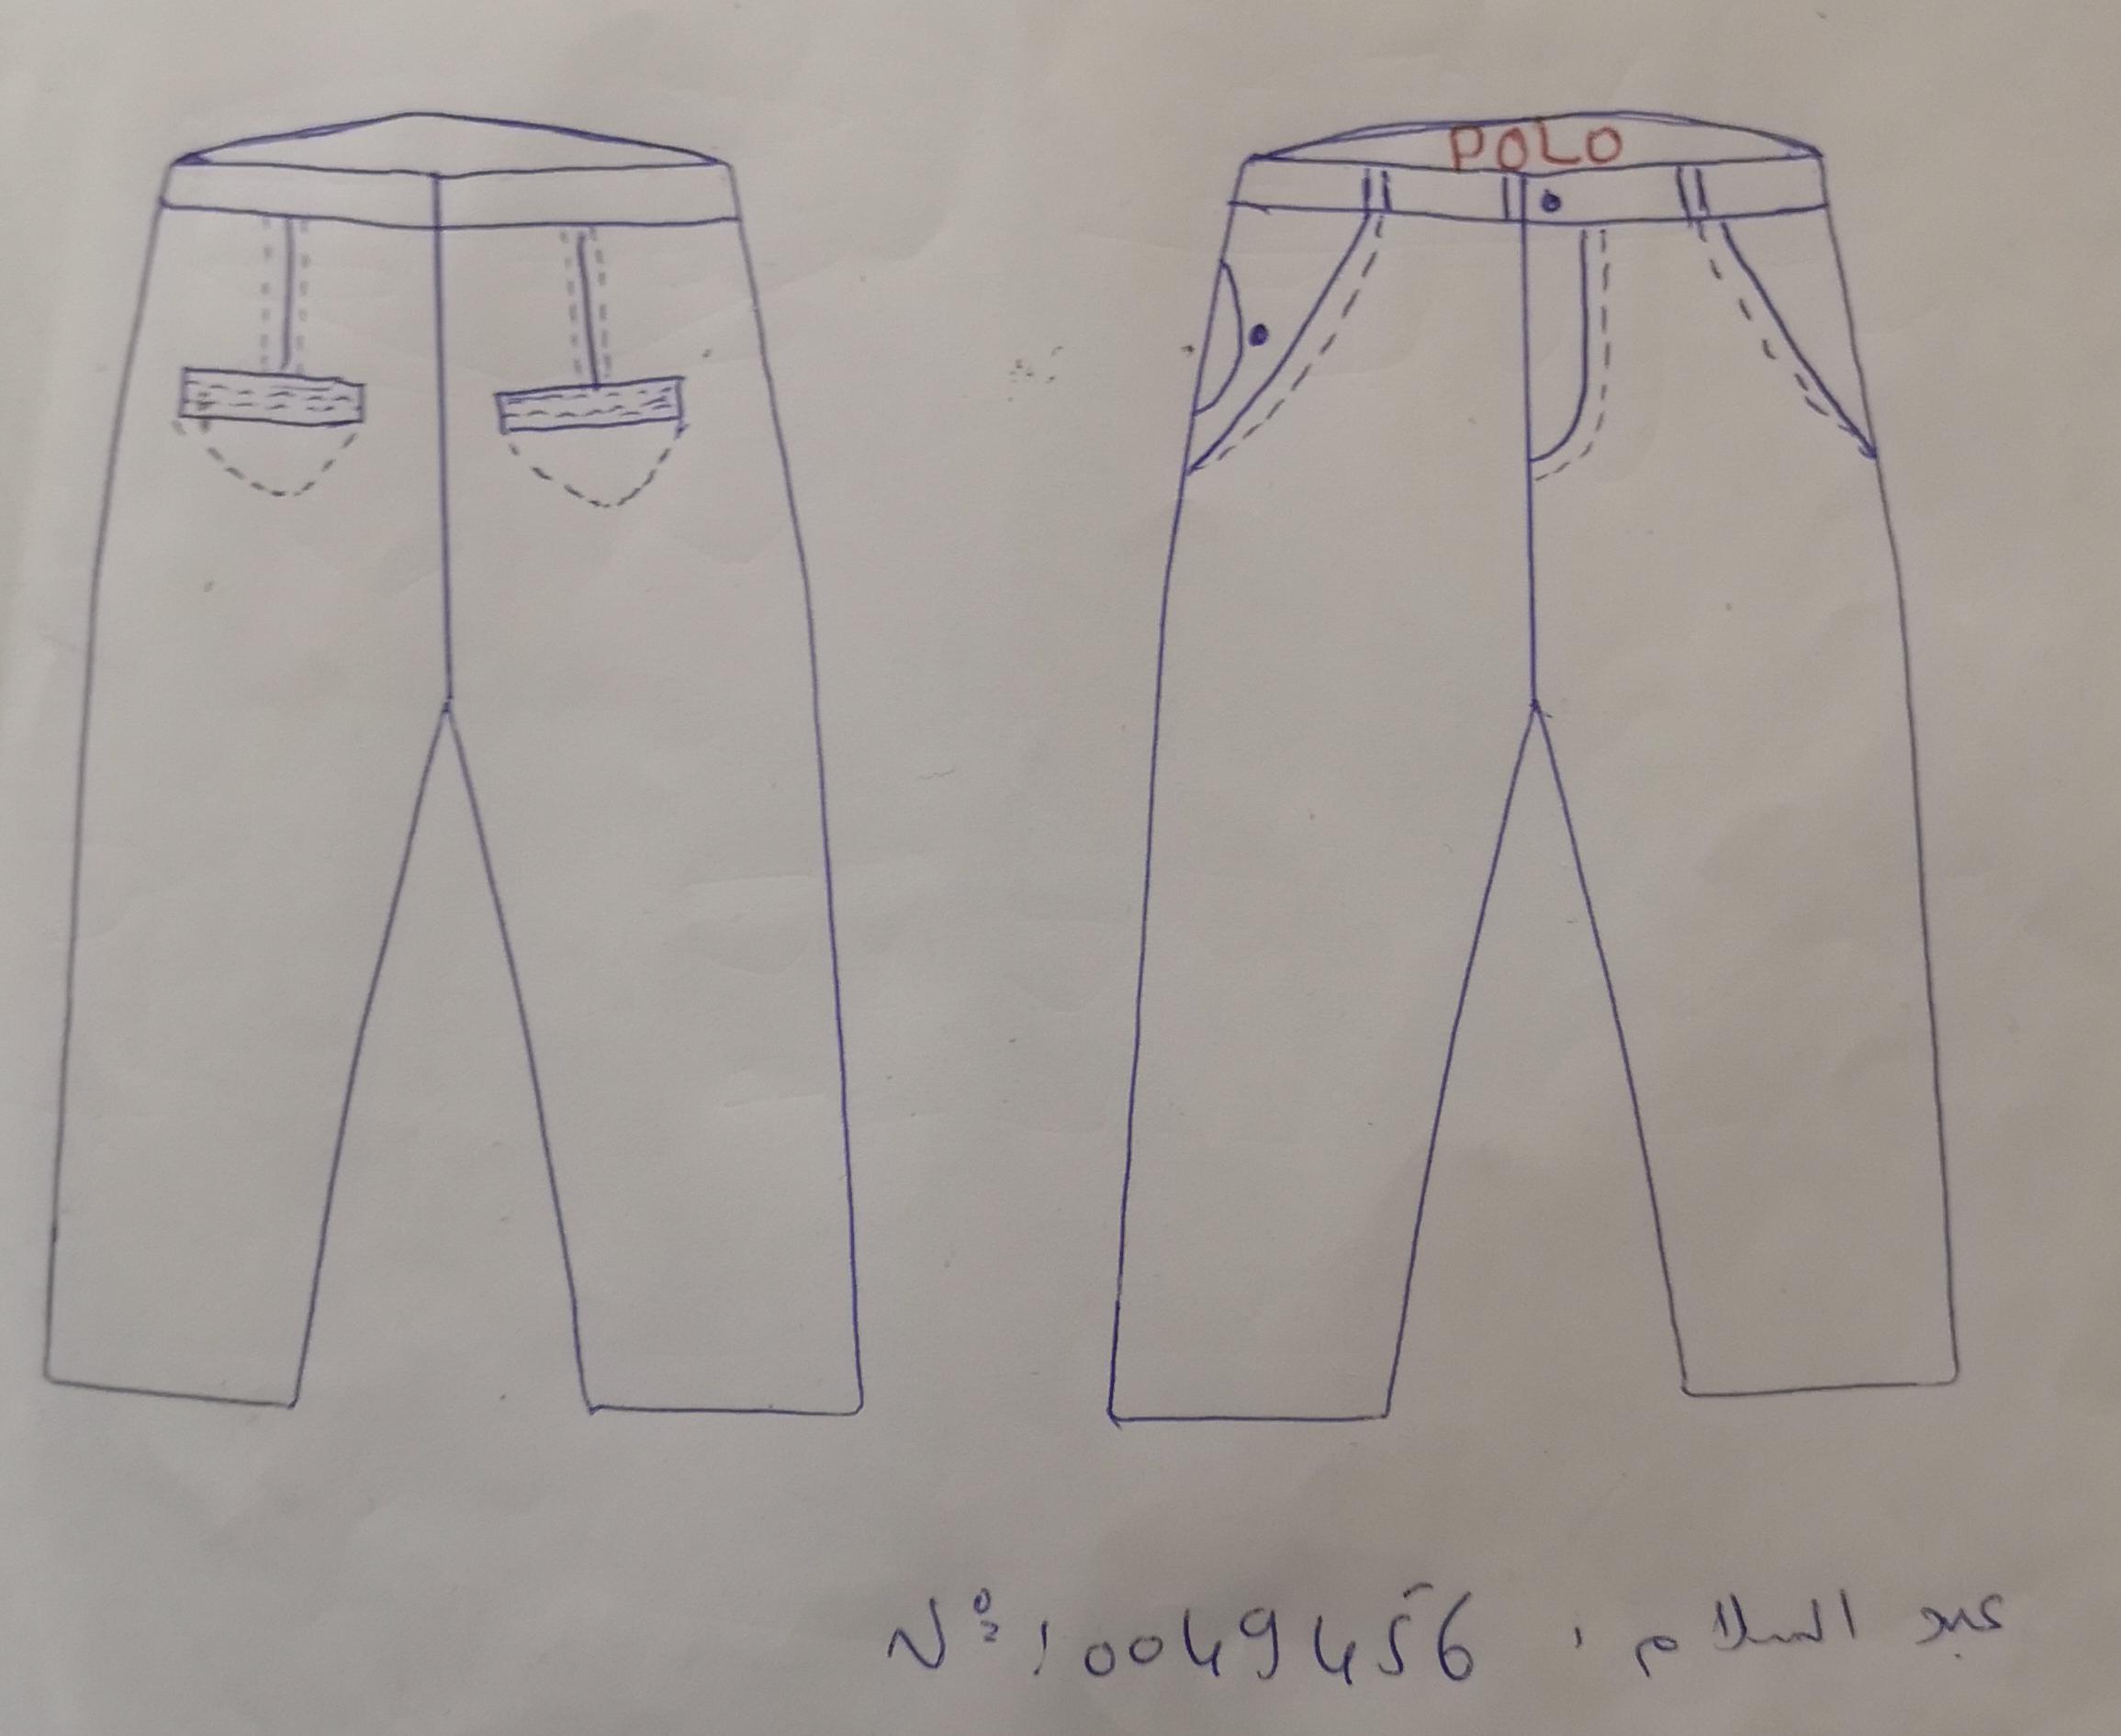 POLO
عبد السلام : N° : 0049456